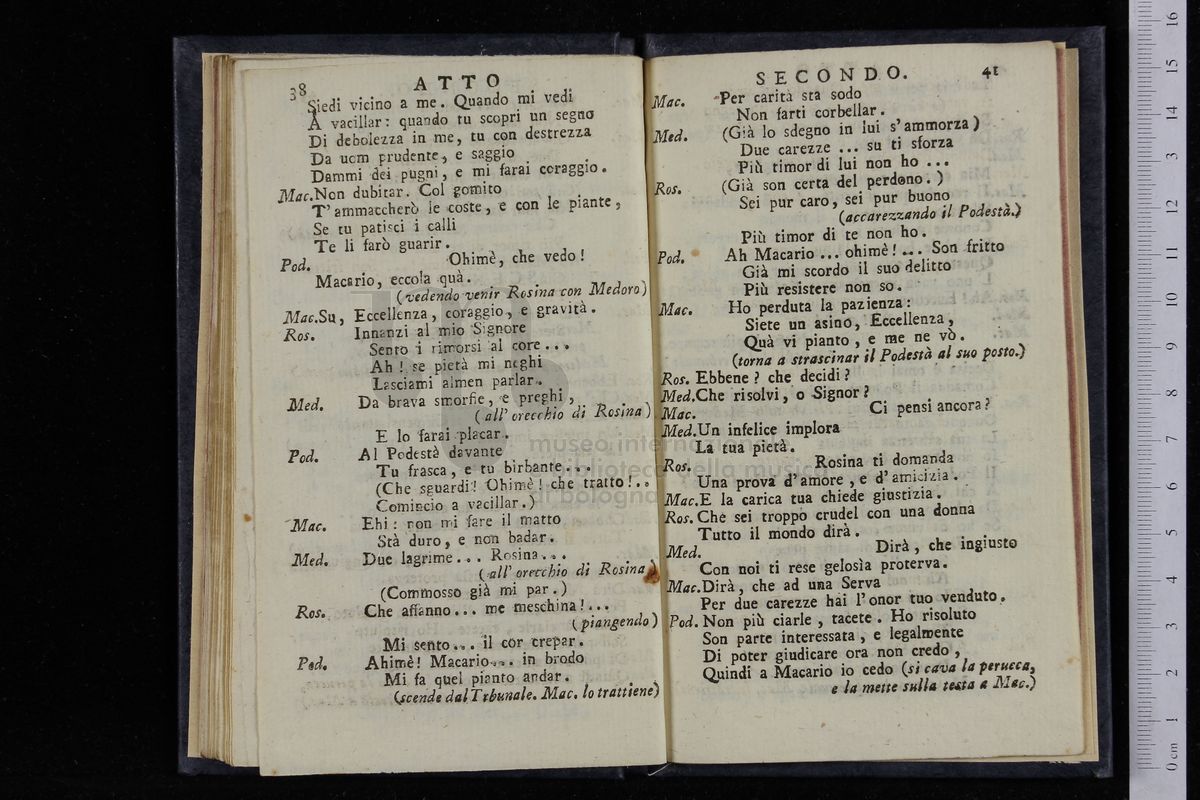 38 ATTO
Siedi vicino a me. Quando mi vedi
A vacillar: quando tu scopri un segno
Di debolezza in me, tu con destrezza
Da uom prudente, e saggio
Dammi dei pugni, e mi farai coraggio.
Mac. Non dubitar. Col gomito
T'ammaccherò le coste, e con le piante,
Se tu patisci i calli
Te li farò guarir.
Pod. Ohimè, che vedo!
Macario, eccola quà.
(vedendo venir Rosina con Medoro)
Mac. Su, Eccellenza, coraggio, e gravità.
Ros. Innanzi al mio Signore
Sento i rimorsi al core...
Ah! se pietà mi neghi
Lasciami almen parlar.
Med. Da brava smorfie, e preghi,
(all' orecchio di Rosina)
E lo farai placar.
Pod. Al Podestà davante
Tu frasca, e tu birbante...
(Che sguardi! Ohimè! che tratto!..
Comincio a vacillar.)
Mac. Ehi: non mi fare il matto
Stà duro, e non badar.
Med. Due lagrime... Rosina...
(all' orecchio di Rosina)
(Commosso già mi par.)
Ros. Che affanno... me meschina!...
(piangendo)
Mi sento... il cor crepar.
Pod. Ahimè! Macario... in brodo
Mi fa quel pianto andar.
(scende dal Trbunale. Mac. lo trattiene)
SECONDO. 41
Mac. Per carità sta sodo
Non farti corbellar.
Med. (Già lo sdegno in lui s'ammorza)
Due carezze ... su ti sforza
Più timor di lui non ho ...
Ros. (Già son certa del perdono.)
Sei pur caro, sei pur buono
(accarezzando il Podestà.)
Più timor di te non ho.
Pod. Ah Macario ... ohimè!... Son fritto
Già mi scordo il suo delitto
Più resistere non so.
Mac. Ho perduta la pazienza:
Siete un asino, Eccellenza,
Quà vi pianto, e me ne vò.
(torna a strascinar il Podestà al suo posto.)
Ros. Ebbene? che decidi?
Med. Che risolvi, o Signor?
Mac. Ci pensi ancora?
Med. Un infelice implora
La tua pietà.
Ros. Rosina ti domanda
Una prova d'amore, e d'amicizia.
Mac. E la carica tua chiede giustizia.
Ros. Che sei troppo crudel con una donna
Tutto il mondo dirà.
Med. Dirà, che ingiusto
Con noi ti rese gelosìa proterva.
Mac. Dirà, che ad una Serva
Per due carezze hai l'onor tuo venduto.
Pod. Non più ciarle, tacete. Ho risoluto
Son parte interessata, e legalmente
Di poter giudicare ora non credo,
Quindi a Macario io cedo (si cava la perucca,
e la mette sulla testa a Mac.)
museo internazionale
e biblioteca della musica
di bologna
0 cm 1 2 3 4 5 6 7 8 9 10 11 12 13 14 15 16